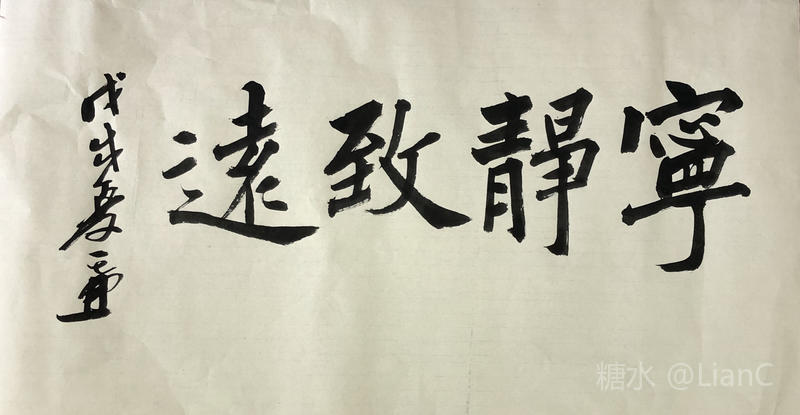 寧靜致遠
戊戌夏
糖水 @LianC